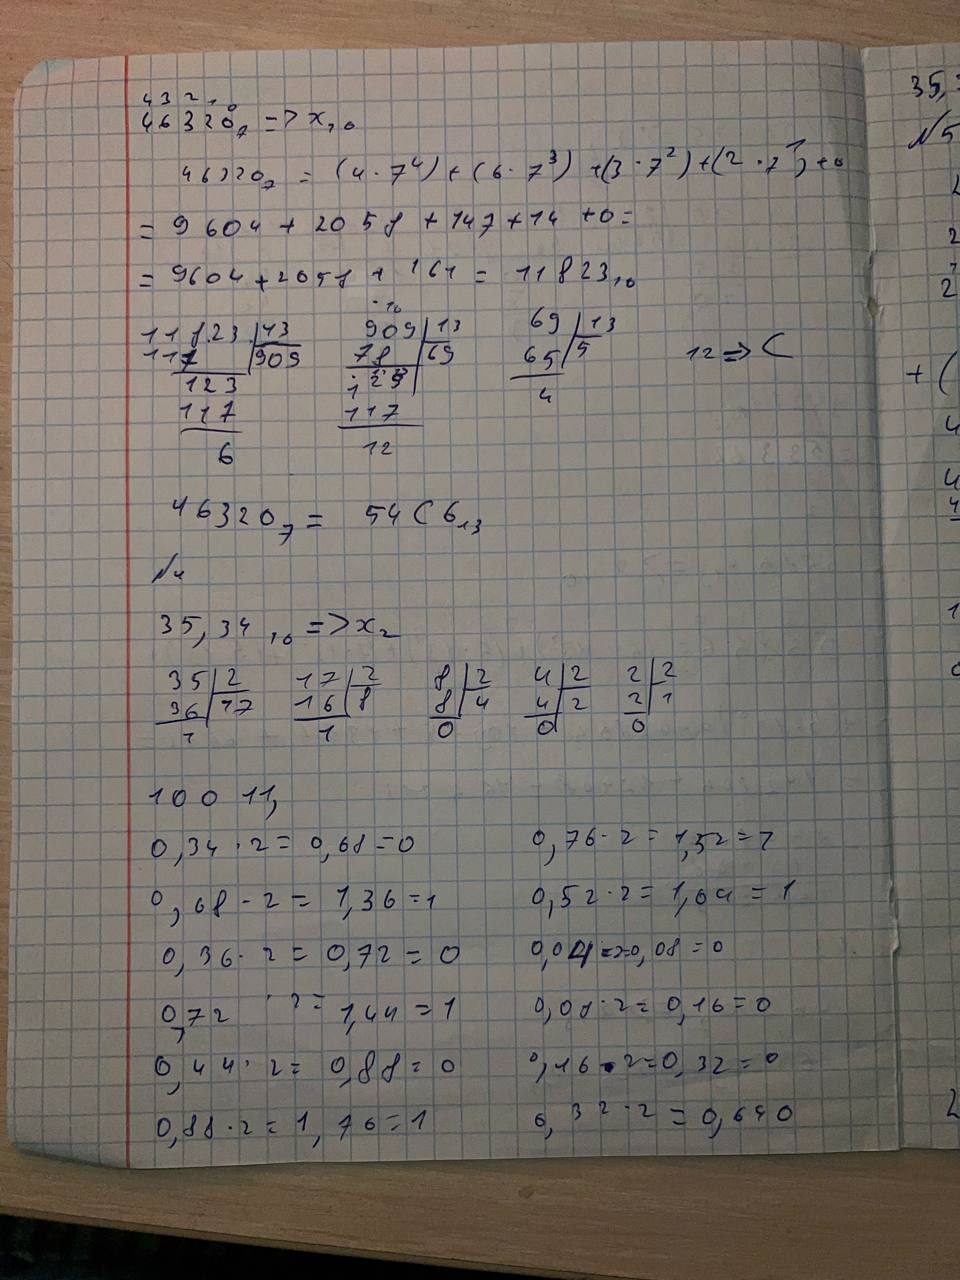 4 3 2 1 0
46320₇ => x₁₀
46320₇ = (4·7⁴) + (6·7³) + (3·7²) + (2·7¹) + 0
= 9604 + 2058 + 147 + 14 + 0 =
= 9604 + 2058 + 161 = 11823₁₀
11823 | 13
117 | 909
123
117
6
10
909 | 13
78 | 69
129
117
12
69 | 13
65 | 5
4
12 => C
46320₇ = 54C6₁₃
№4
35,34₁₀ => x₂
35 | 2 17 | 2 8 | 2 4 | 2 2 | 2
36 | 17 16 | 8 8 | 4 4 | 2 2 | 1
1 1 0 0 0
10011,
0,34·2 = 0,68 = 0
0,68·2 = 1,36 = 1
0,36·2 = 0,72 = 0
0,72 ·2 = 1,44 = 1
0,44·2 = 0,88 = 0
0,88·2 = 1,76 = 1
0,76·2 = 1,52 = 1
0,52·2 = 1,04 = 1
0,04 => 0,08 = 0
0,08·2 = 0,16 = 0
0,16·2 = 0,32 = 0
0,32·2 = 0,64 0
35,
№5
2
2
+ (
4
4
4
1